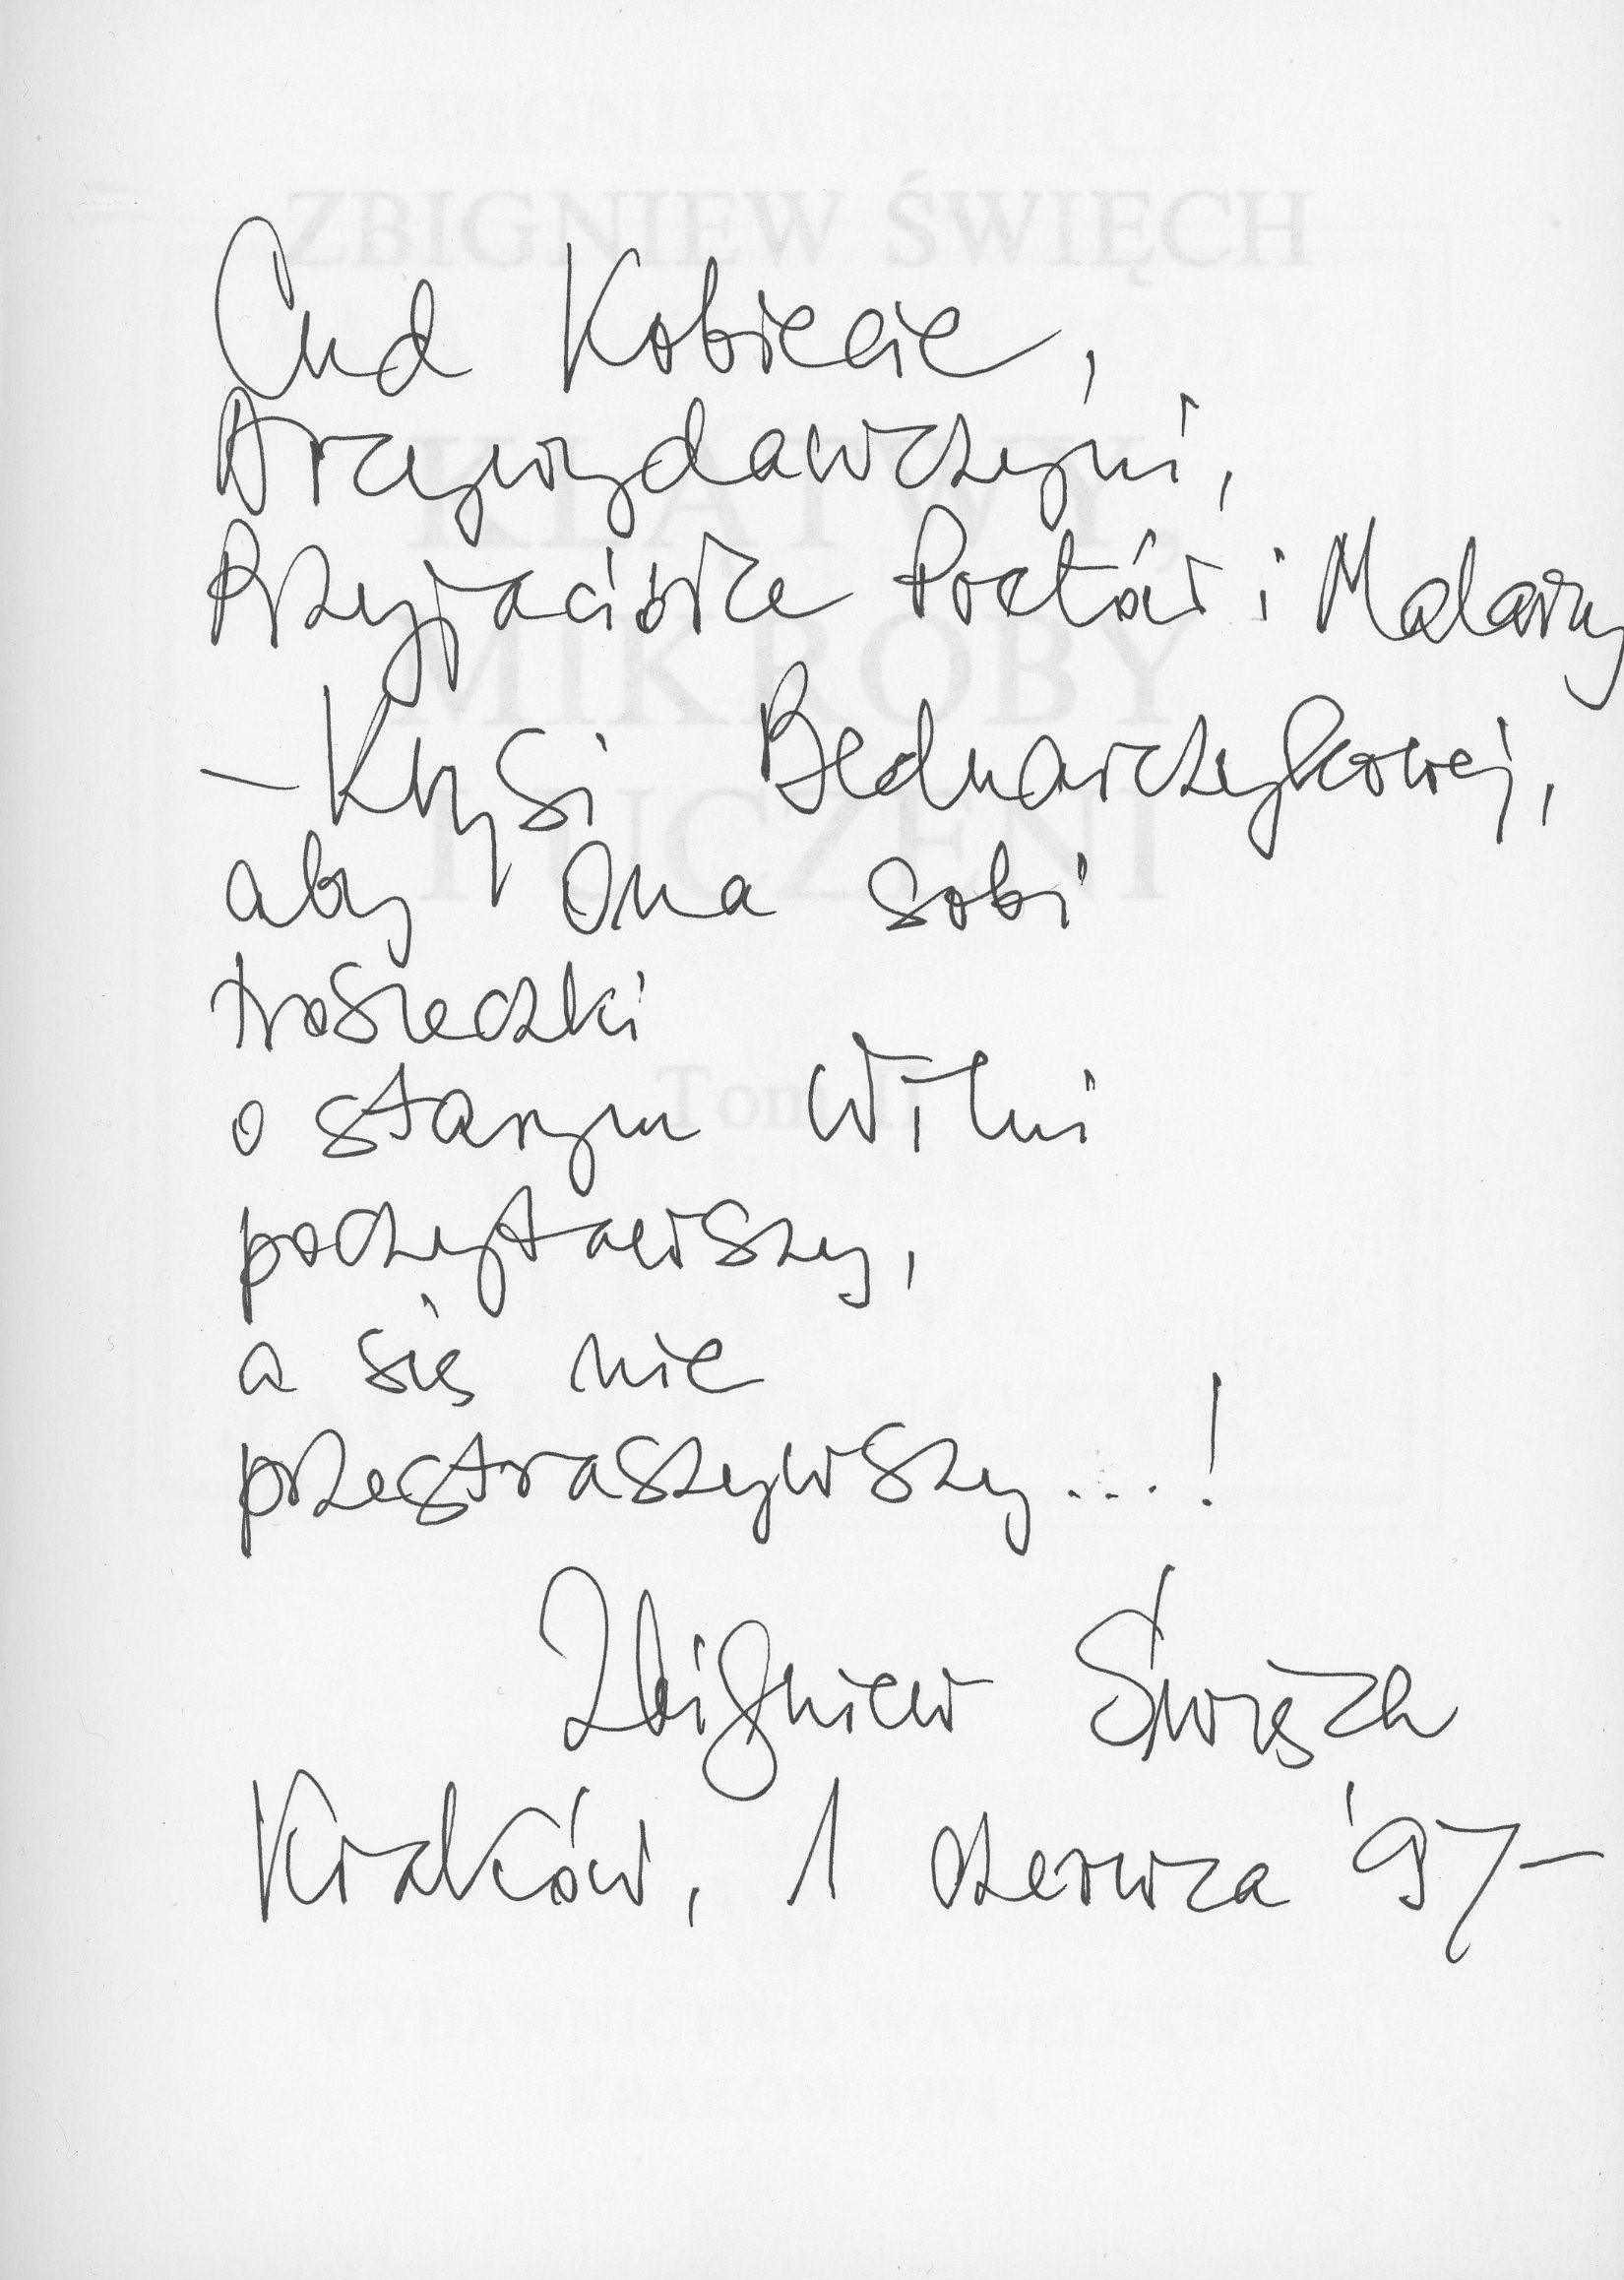 Cud Kobiecie,
Arcywydawczyni,
Przyjaciółce Poetów i Malarzy
– Krysi Bednarczykowej,
aby Ona sobi
trosieczki
o starym Wilni
poczytawszy,
a się nie
przestraszywszy...!
Zbigniew Święch
Kraków, 1 czerwca '97–
ZBIGNIEW ŚWIĘCH
KLĄTWY,
MIKROBY
I UCZENI